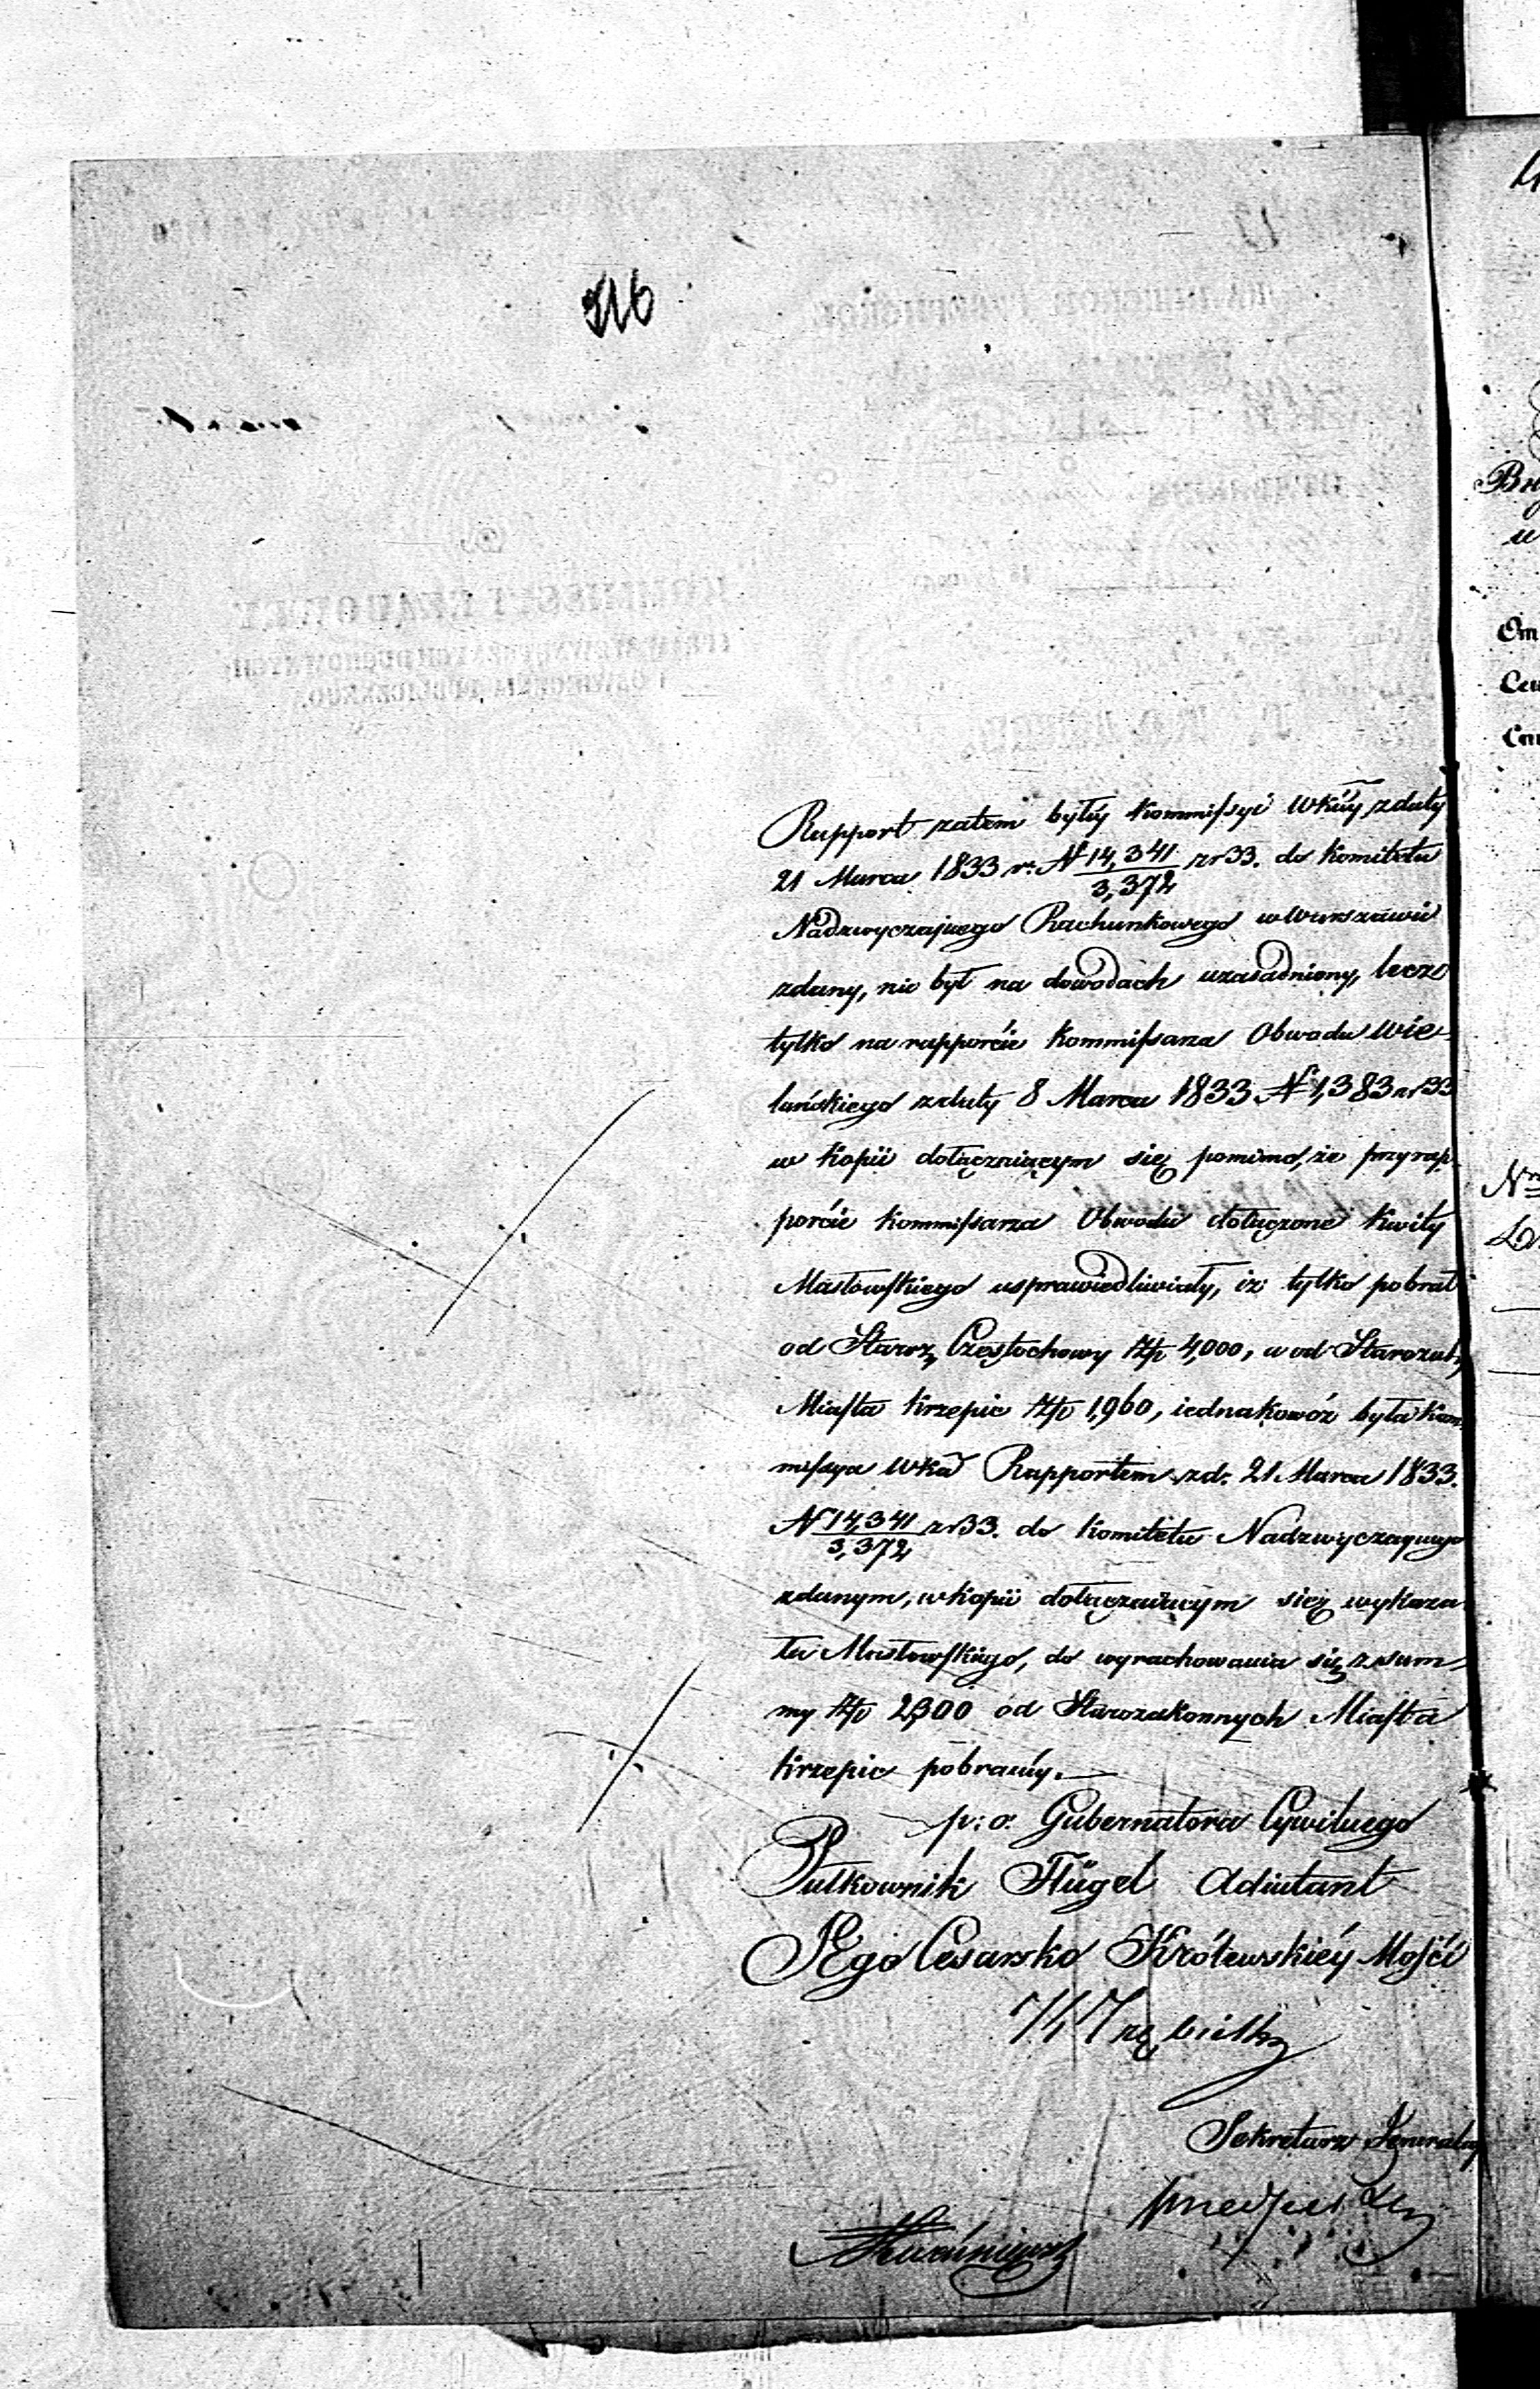 Rapport zatem byłéy Kommissyi Wkiéy z daty
21 Marca 1833 r. N 14,341/3,372 z r 33. do Komitetu
Nadzwyczajnego Rachunkowego w Warszawie
zdany, nie był na dowodach uzasadniony, lecz
tylko na rapporcie Kommissarza Obwodu Wie-
luńskiego z daty 8 Marca 1833 N 1,383 z r 33
w kopii dołączaiącym się pomimo, że przy rap-
porcie Kommissarza Obwodu dołączone kwity
Masłowskiego usprawiedliwiały, iż tylko pobrał
od Starz. Częstochowy Złp 4,000, a od Starozak.
Miasta Krzepic Złp 1,960, iednakowoż była Kom-
missya Wka Rapportem z d. 21 Marca 1833.
N 14,341/3,372 z r 33. do Komitetu Nadzwyczaynego
zdanym, w kopii dołączaiącym się wykaza-
ła Masłowskiego, do wyrachowania się z sum-
my Złp 2,300 od Starozakonnych Miasta
Krzepic pobranéy.
p. o. Gubernatora Cywilnego
Pułkownik Flügel Adiutant
JEgo Cesarsko Królewskiéy Mości
Sekretarz Jeneralny